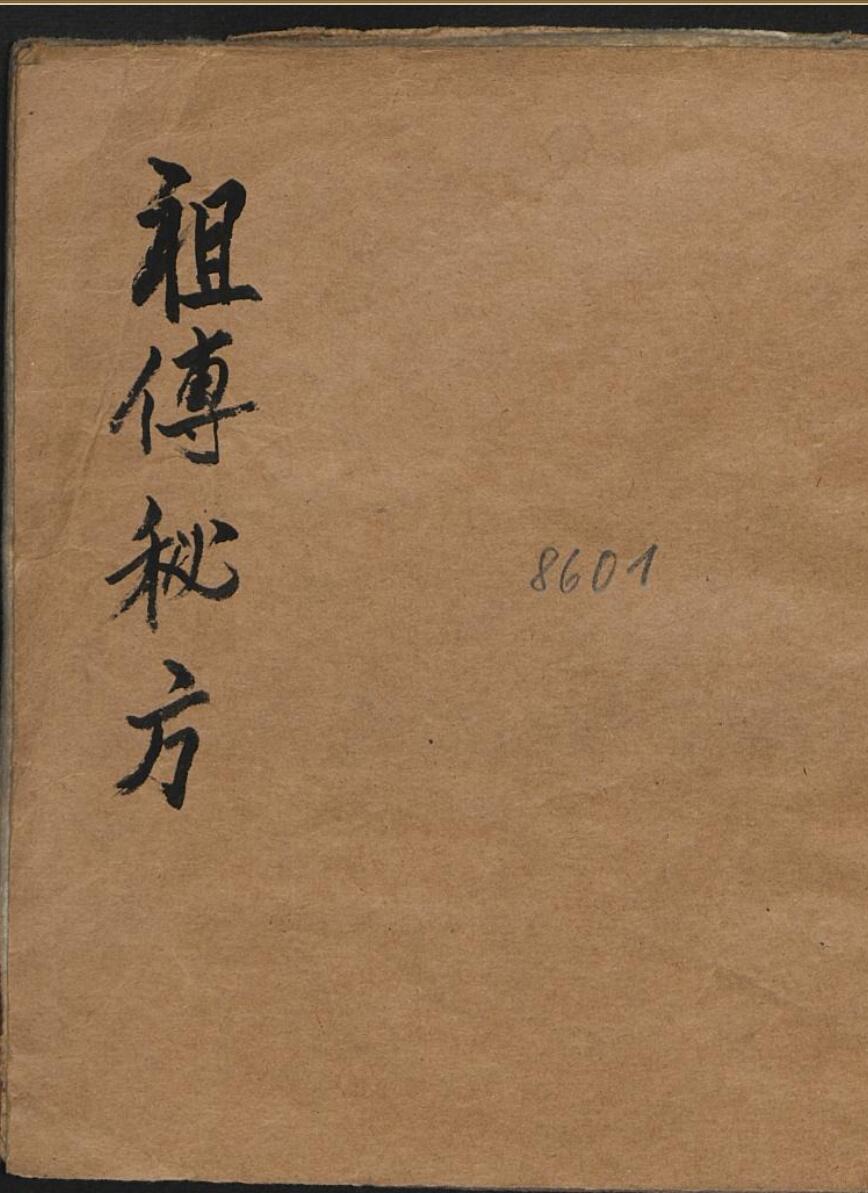 祖傳秘方
8601